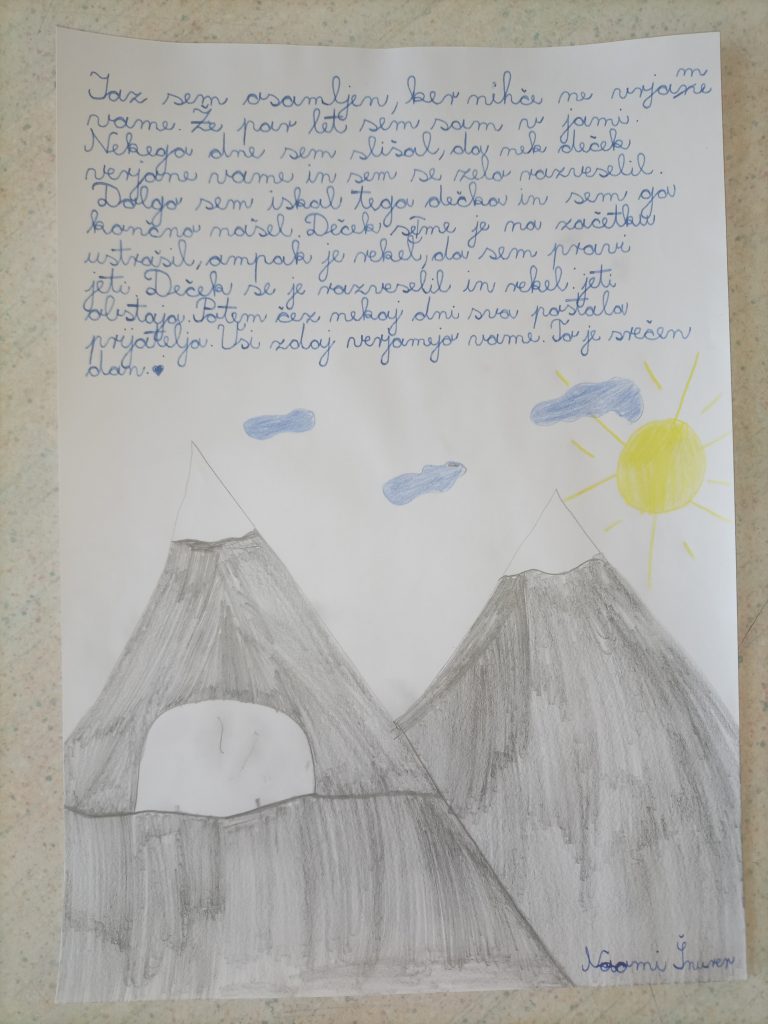 Jaz sem osamljen, ker nihče ne vrjame
vame. Že par let sem sam v jami.
Nekega dne sem slišal, da nek deček
verjame vame in sem se zelo razveselil.
Dolgo sem iskal tega dečka in sem ga
končno našel. Deček se me je na začetku
ustrašil, ampak je rekel, da sem pravi
jeti. Deček se je razveselil in rekel jeti
obstaja. Potem čez nekaj dni sva postala
prjatelja. Vsi zdaj verjamejo vame. To je srečen
dan.
Naomi